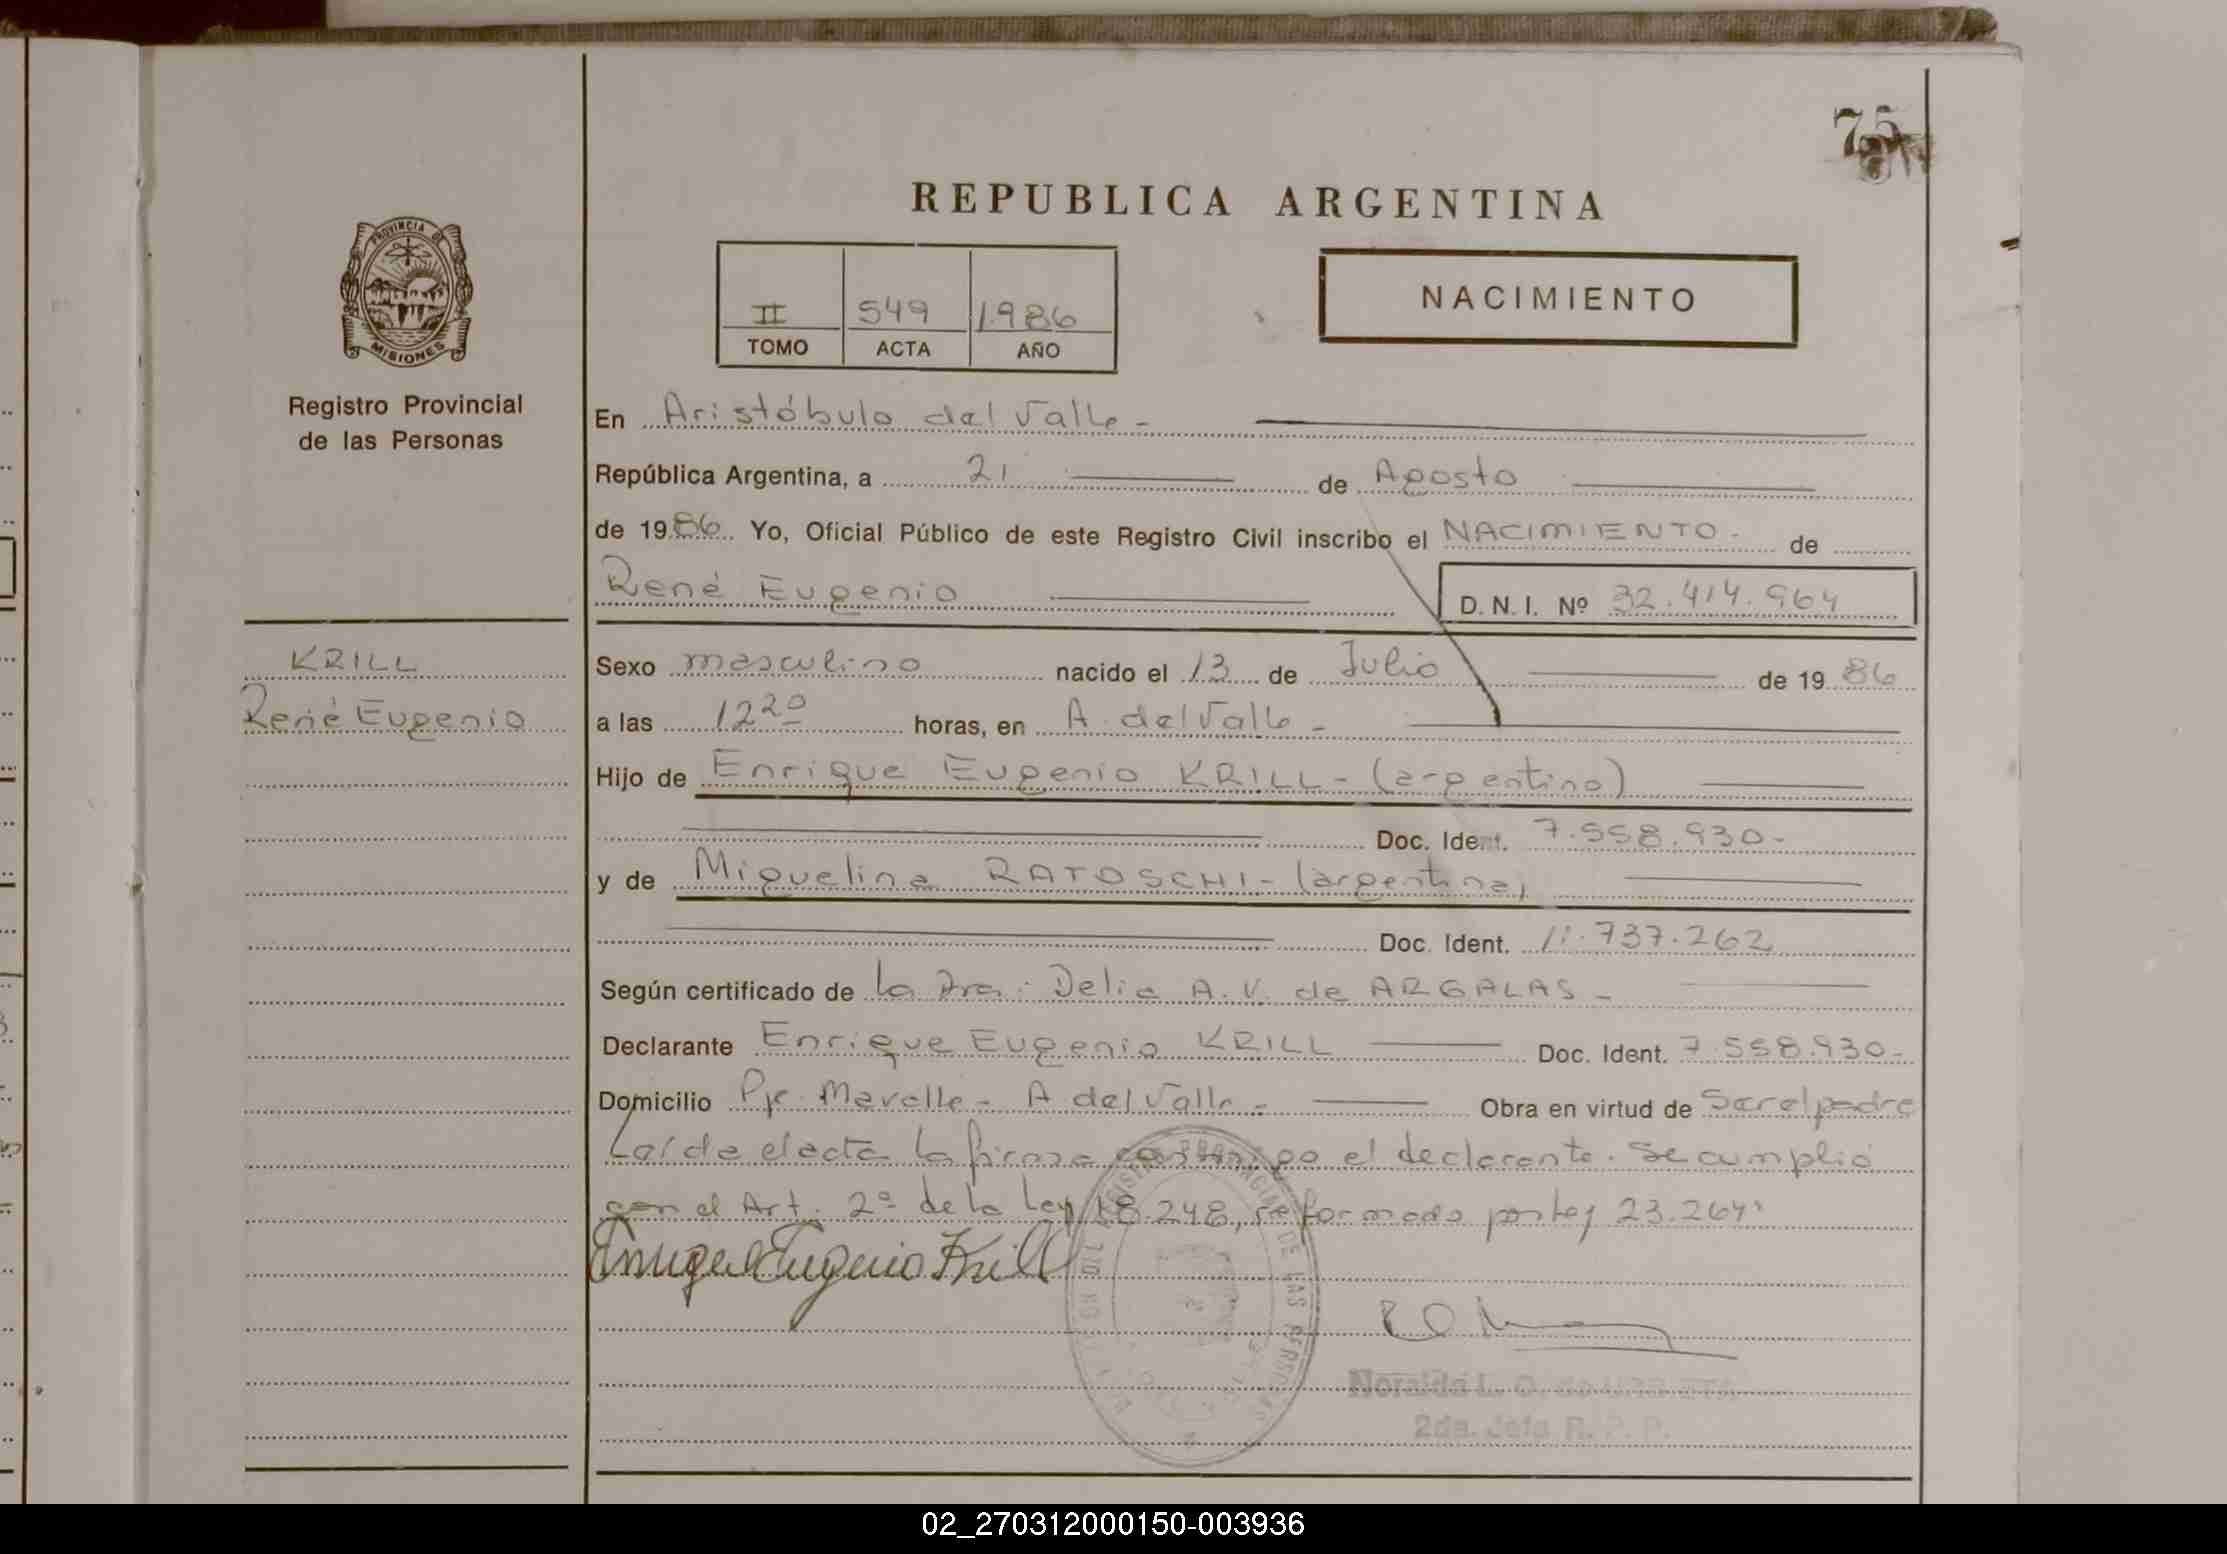 75
REPUBLICA ARGENTINA
PROVINCIA DE
MISIONES
Registro Provincial
de las Personas
II 549 1986
TOMO ACTA AÑO
NACIMIENTO
En Aristóbulo del Valle -
República Argentina, a 21 de Agosto
de 1986. Yo, Oficial Público de este Registro Civil inscribo el NACIMIENTO - de
René Eugenio D. N. I. Nº 32.414.964
KRILL
René Eugenio
Sexo masculino nacido el 13 de Julio de 1986
a las 12 20 horas, en A. del Valle -
Hijo de Enrique Eugenio KRILL - (argentino)
Doc. Ident. 7.558.930-
y de Miguelina RATOSCHI - (argentina)
Doc. Ident. 11.737.262
Según certificado de la Dra. Delia A. V. de ARGALAS -
Declarante Enrique Eugenio KRILL Doc. Ident. 7.558.930-
Domicilio Pje. Mavalle - A del Valle - Obra en virtud de Ser el padre
Leída el acta la firma conmigo el declarante. Se cumplió
con el Art. 2º de la Ley 18.248, reformado por Ley 23.264.
Enrique Eugenio Krill
REGISTRO PROVINCIAL DE LAS PERSONAS
Noraida L. O. de URBIETA
2da. Jefa R. P. P.
02_270312000150-003936